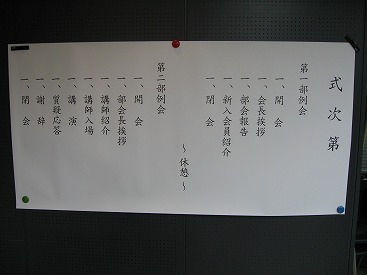 式次第
第一部例会
一、開会
一、会長挨拶
一、部会報告
一、新入会員紹介
一、閉会
～休憩～
第二部例会
一、開会
一、部会長挨拶
一、講師紹介
一、講師入場
一、講演
一、質疑応答
一、謝辞
一、閉会